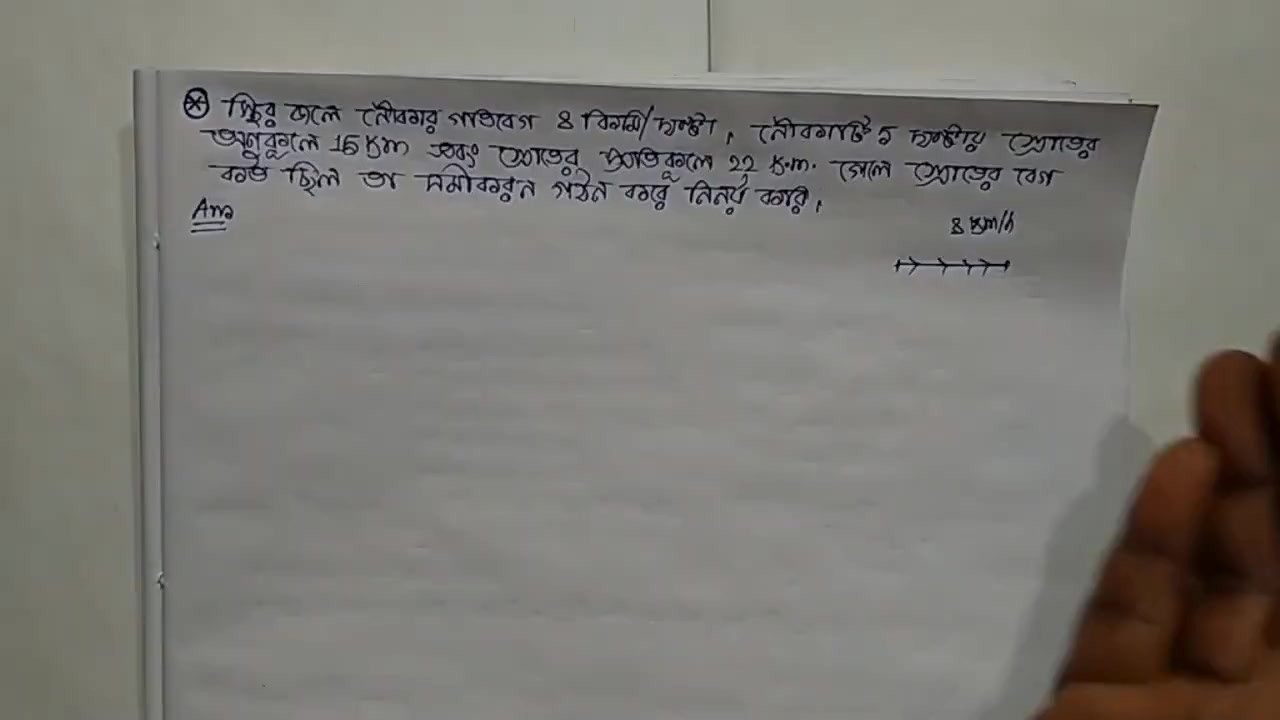 স্থির জলে নৌকার গতিবেগ 8 কিমি/ঘণ্টা, নৌকাটি 5 ঘণ্টায় স্রোতের
অনুকূলে 15 Km এবং স্রোতের প্রতিকূলে 22 K.m. গেলে স্রোতের বেগ
কত ছিল তা সমীকরন গঠন করে নির্নয় করি,
Ans
8 Km/h